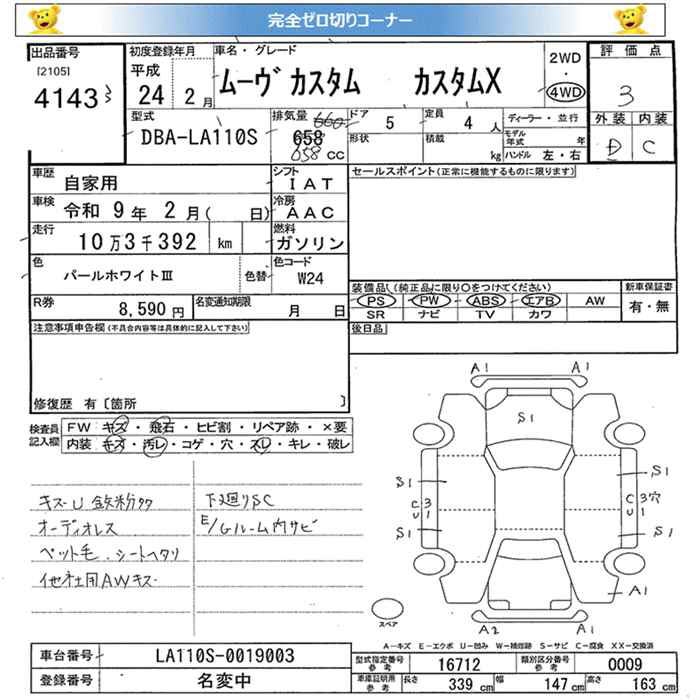 完全ゼロ切りコーナー
出品番号 初度登録年月 車名・グレード 2WD 評価点
[2105] 平成 ムーヴ カスタム カスタムX ・
4143 24 2 月 4WD 3
型式 排気量 660 ドア 5 定員 4 人 ディーラー・並行 外装 内装
DBA-LA110S 658 形状 積載 kg モデル年式 年 D C
658 CC ハンドル 左・右
車歴 自家用 シフト IAT セールスポイント(正常に機能するものに限ります)
車検 令和 9 年 2 月( 日) 冷房 AAC
走行 10万3千392 km 燃料 ガソリン
色 パールホワイトⅢ 色替 色コード W24
装備品(純正品に限り○をつけてください) 新車保証書
R券 8,590 円 名変通知期限 月 日 PS PW ABS エアB AW 有・無
SR ナビ TV カワ
注意事項申告欄(不具合内容等は具体的に記入して下さい) 後日品
修復歴 有〔箇所 〕
検査員記入欄 FW キズ・飛石・ヒビ割・リペア跡・×要
内装 キズ・汚レ・コゲ・穴・スレ・キレ・破レ
A1 A1
S1
S1 S1
C3 3穴
U1 C1
U
S1 S1
A1
A2 A1
キズ-U 鉄粉多 下廻りSC
オーディオレス E/Gルーム内サビ
ペット毛、シートヘタリ
他社用AWキズ
スペア
A-キズ E-エクボ U-凹み W-補修跡 S-サビ C-腐食 XX-交換済
車台番号 LA110S-0019003
型式指定番号 参考 16712 類別区分番号 参考 0009
登録番号 名変中
車庫証明用 参考 長さ 339 cm 幅 147 cm 高さ 163 cm